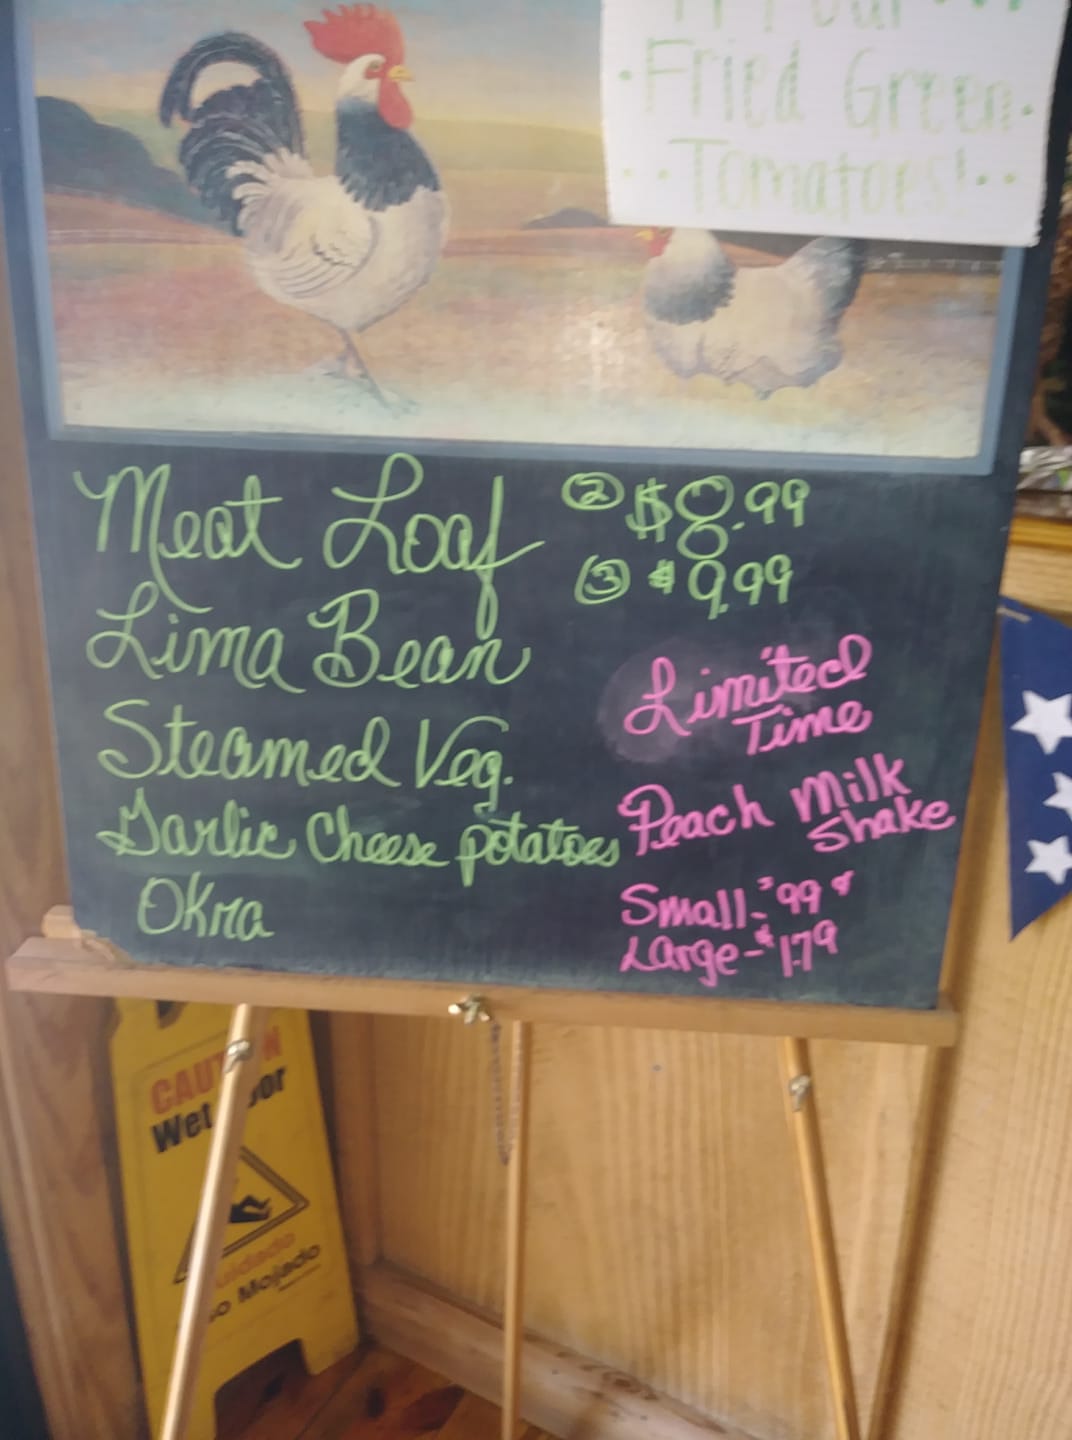 Try our
Fried Green
Tomatoes!
Meat Loaf ② $8.99
③ $9.99
Lima Bean
Steamed Veg.
Garlic Cheese potatoes
Okra
Limited
Time
Peach Milk
Shake
Small - .99¢
Large - $1.79
CAUTION
Wet
Cuidado
Mojado